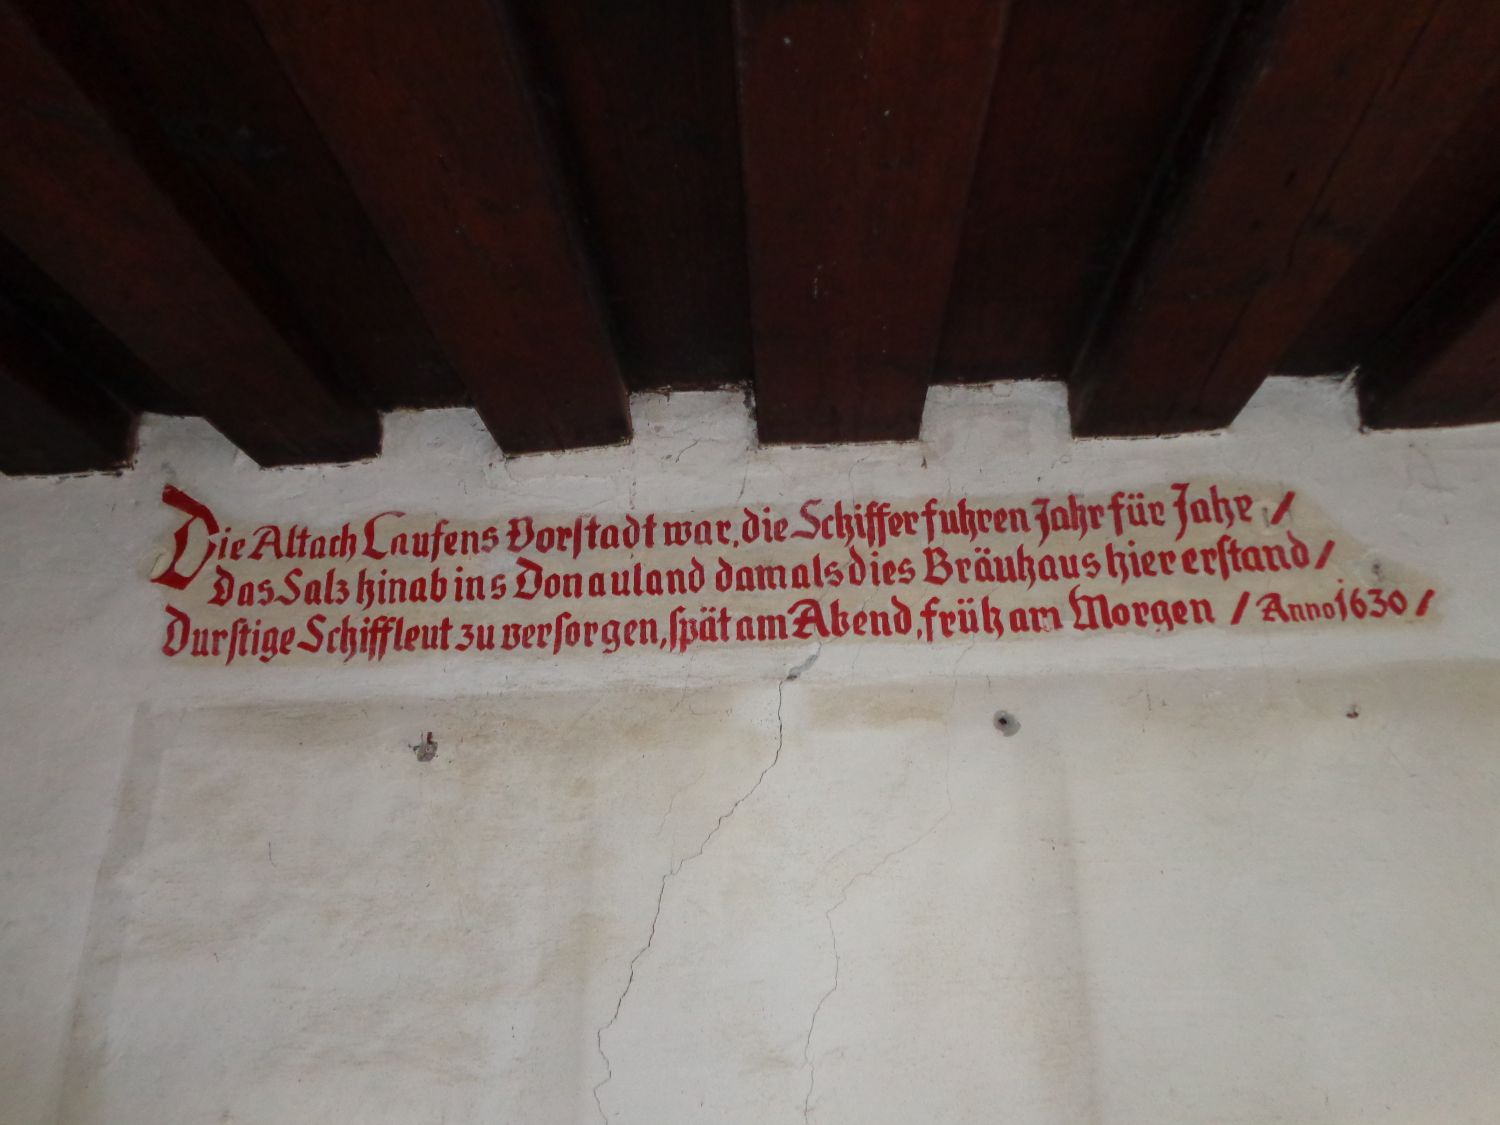 Die Altach Laufens Vorstadt war, die Schiffer fuhren Jahr für Jahr /
Das Salz hinab ins Donauland damals dies Bräuhaus hier erstand /
Durstige Schiffleut zu versorgen, spät am Abend, früh am Morgen / Anno 1630 /